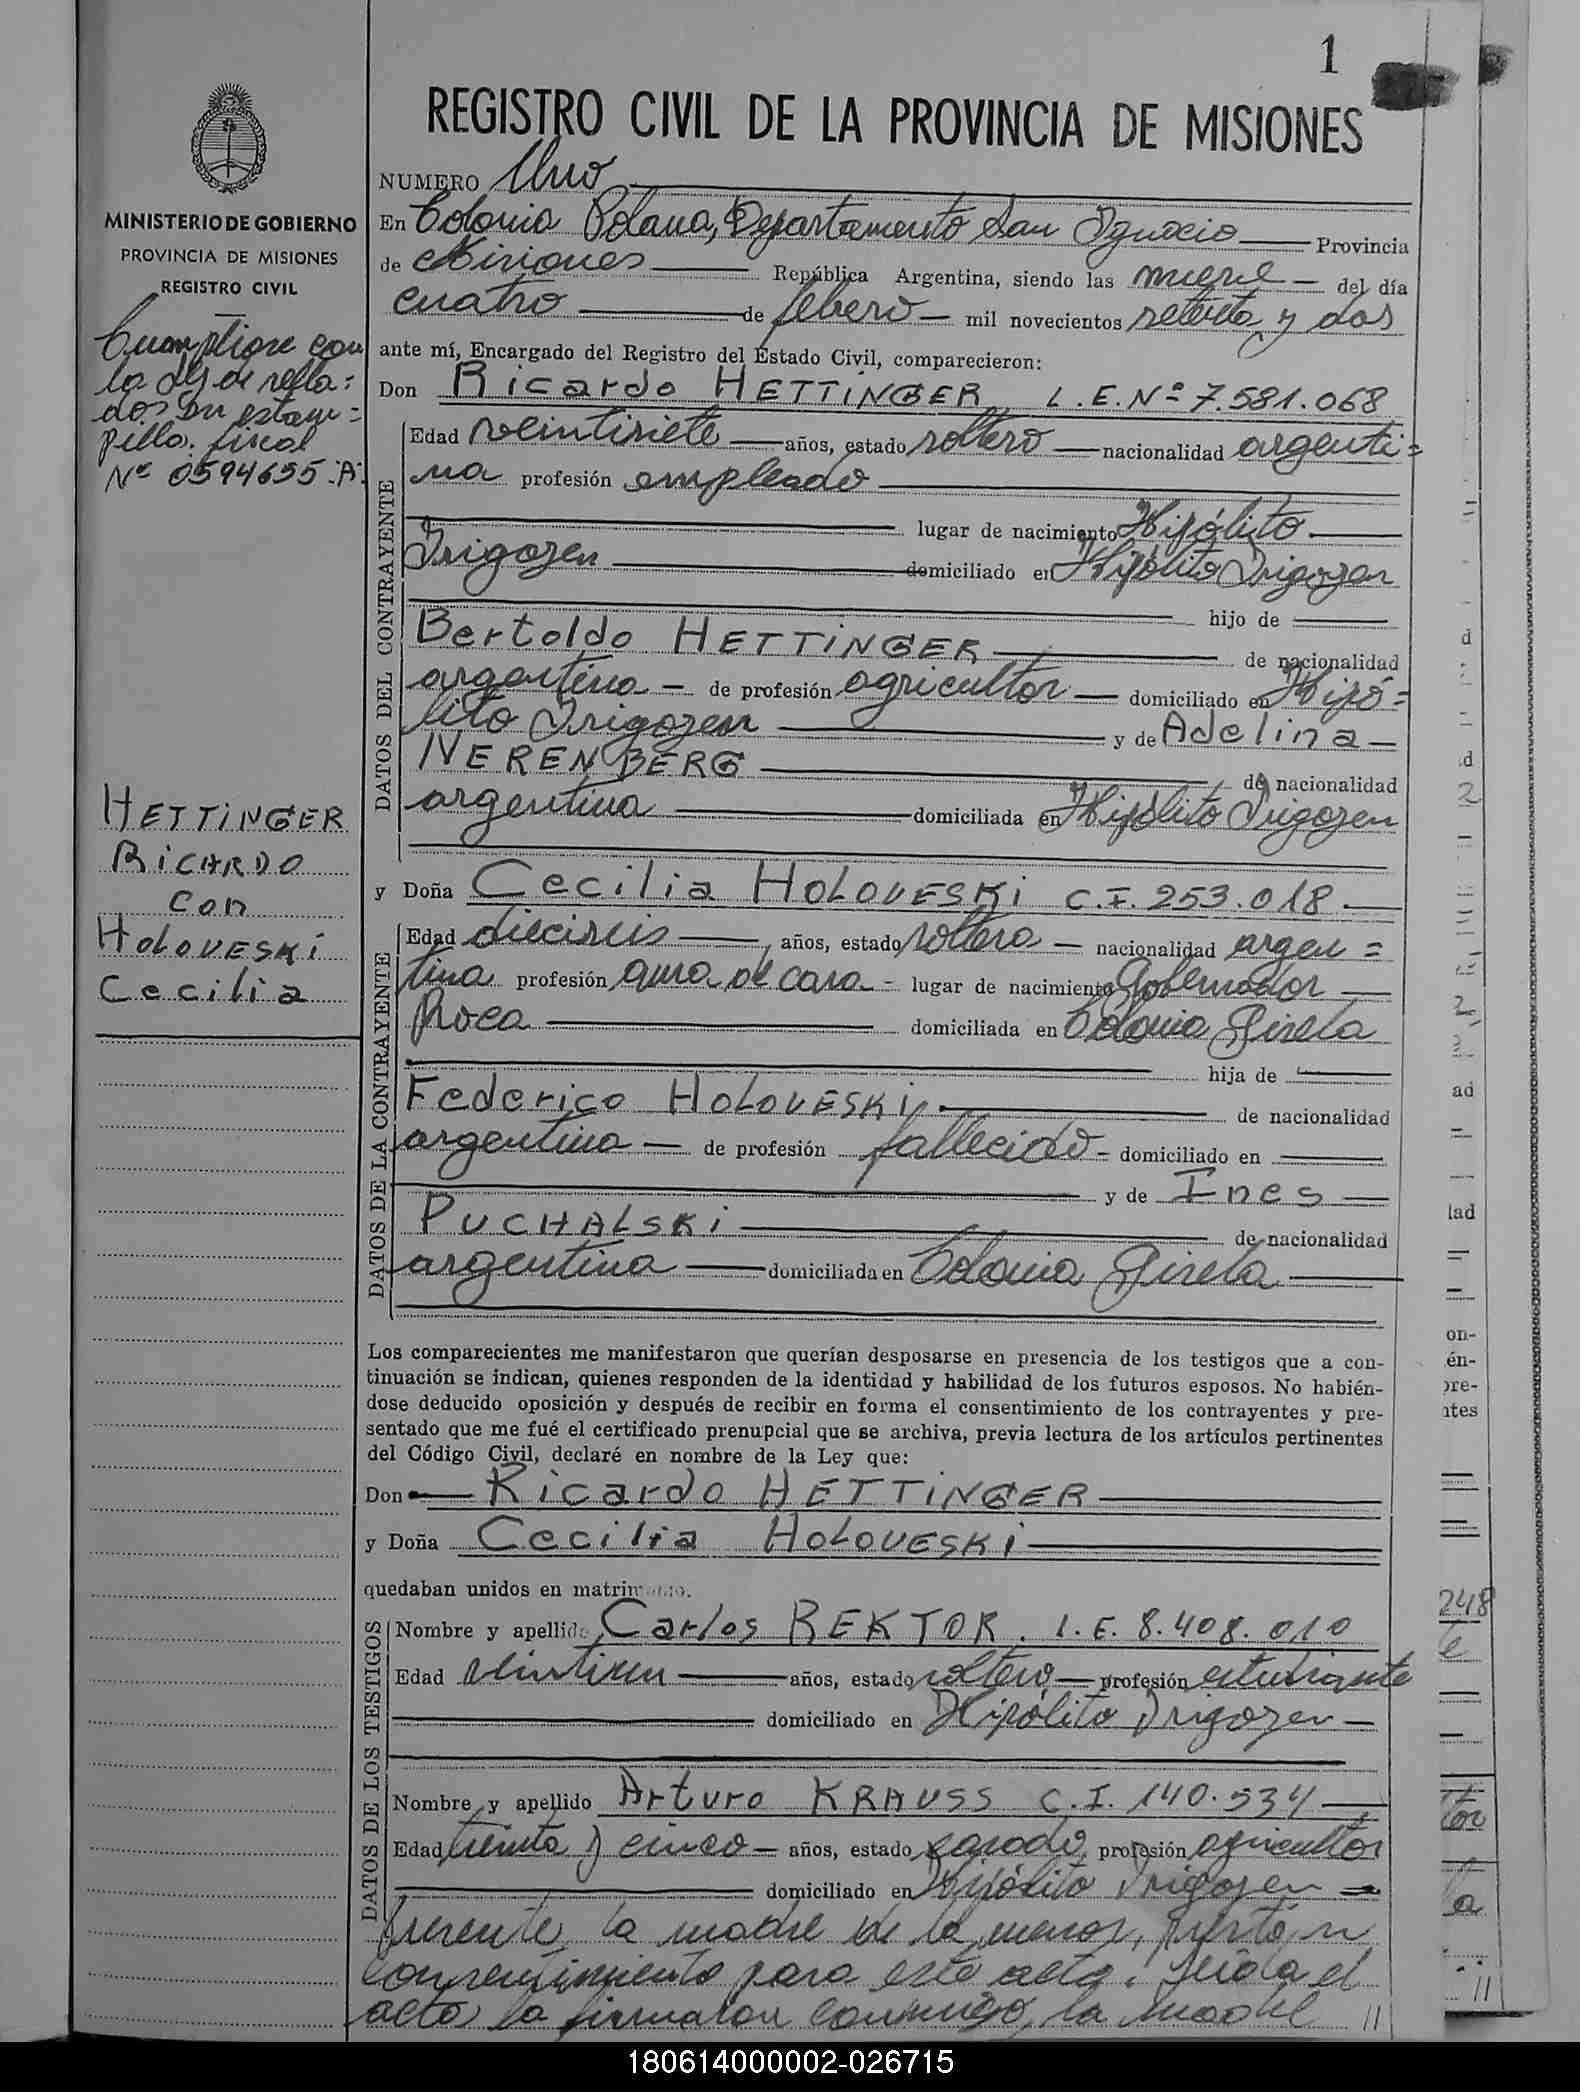 1
REGISTRO CIVIL DE LA PROVINCIA DE MISIONES
MINISTERIO DE GOBIERNO
PROVINCIA DE MISIONES
REGISTRO CIVIL
Cumpliose con
la ley de sella=
dos en estam=
pilla fiscal
Nº 0594655 A
HETTINGER
RICARDO
con
HOLOVESKI
Cecilia
NUMERO Uno
En Colonia Polana, Departamento San Ignacio Provincia
de Misiones República Argentina, siendo las nueve del día
cuatro de febrero mil novecientos setenta y dos
ante mí, Encargado del Registro del Estado Civil, comparecieron:
Don Ricardo HETTINGER L.E.Nº 7.581.068
DATOS DEL CONTRAYENTE
Edad veintisiete años, estado soltero nacionalidad argenti=
na profesión empleado
lugar de nacimiento Hipólito
Irigoyen domiciliado en Hipólito Irigoyen
hijo de
Bertoldo HETTINGER de nacionalidad
argentina de profesión agricultor domiciliado en Hipó=
lito Irigoyen y de Adelina
NERENBERG de nacionalidad
argentina domiciliada en Hipólito Irigoyen
y Doña Cecilia HOLOVESKI C.I. 253.018
DATOS DE LA CONTRAYENTE
Edad dieciseis años, estado soltera nacionalidad argen=
tina profesión ama de casa lugar de nacimiento Gobernador
Roca domiciliada en Colonia Gisela
hija de
Federico HOLOVESKI de nacionalidad
argentina de profesión fallecido domiciliado en
y de Ines
PUCHALSKI de nacionalidad
argentina domiciliada en Colonia Gisela
Los comparecientes me manifestaron que querían desposarse en presencia de los testigos que a con-
tinuación se indican, quienes responden de la identidad y habilidad de los futuros esposos. No habién-
dose deducido oposición y después de recibir en forma el consentimiento de los contrayentes y pre-
sentado que me fué el certificado prenupcial que se archiva, previa lectura de los artículos pertinentes
del Código Civil, declaré en nombre de la Ley que:
Don Ricardo HETTINGER
y Doña Cecilia HOLOVESKI
quedaban unidos en matrimonio.
DATOS DE LOS TESTIGOS
Nombre y apellido Carlos REKTOR. L.E. 8.408.010
Edad veintiseis años, estado soltero profesión estudiante
domiciliado en Hipólito Irigoyen
Nombre y apellido Arturo KRAUSS C.I. 140.534
Edad treinta y cinco años, estado casado profesión agricultor
domiciliado en Hipólito Irigoyen
Presente la madre de la menor, presta su
consentimiento para este acto. Leída el
acta la firmaron conmigo, la madre //
180614000002-026715